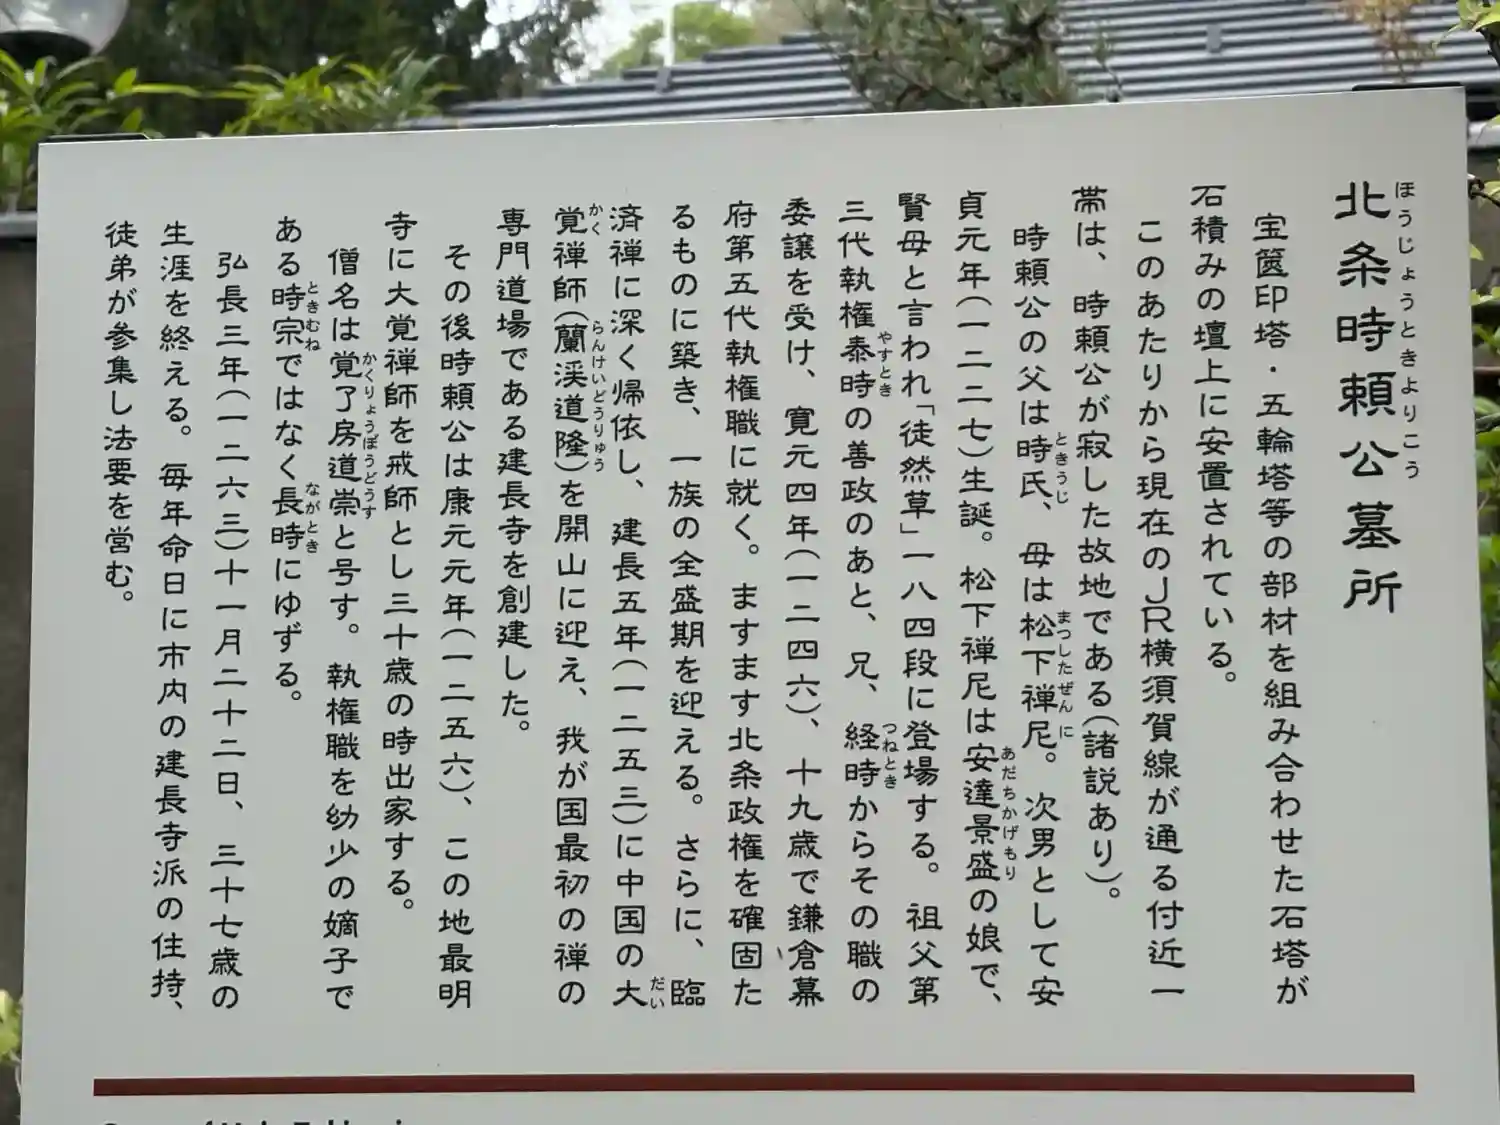 北条時頼公墓所
ほうじょうときよりこう
宝篋印塔・五輪塔等の部材を組み合わせた石塔が
石積みの壇上に安置されている。
このあたりから現在のJR横須賀線が通る付近一
帯は、時頼公が寂した故地である(諸説あり)。
時頼公の父は時氏、母は松下禅尼。次男として安
ときうじ
まつしたぜんに
貞元年(一二二七)生誕。松下禅尼は安達景盛の娘で、
あだちかげもり
賢母と言われ「徒然草」一八四段に登場する。祖父第
三代執権泰時の善政のあと、兄、経時からその職の
やすとき
つねとき
委譲を受け、寛元四年(一二四六)、十九歳で鎌倉幕
府第五代執権職に就く。ますます北条政権を確固た
るものに築き、一族の全盛期を迎える。さらに、臨
済禅に深く帰依し、建長五年(一二五三)に中国の大
だい
覚禅師(蘭渓道隆)を開山に迎え、我が国最初の禅の
かく
らんけいどうりゅう
専門道場である建長寺を創建した。
その後時頼公は康元元年(一二五六)、この地最明
寺に大覚禅師を戒師とし三十歳の時出家する。
僧名は覚了房道崇と号す。執権職を幼少の嫡子で
かくりょうぼうどうす
ある時宗ではなく長時にゆずる。
ときむね
ながとき
弘長三年(一二六三)十一月二十二日、三十七歳の
生涯を終える。毎年命日に市内の建長寺派の住持、
徒弟が参集し法要を営む。